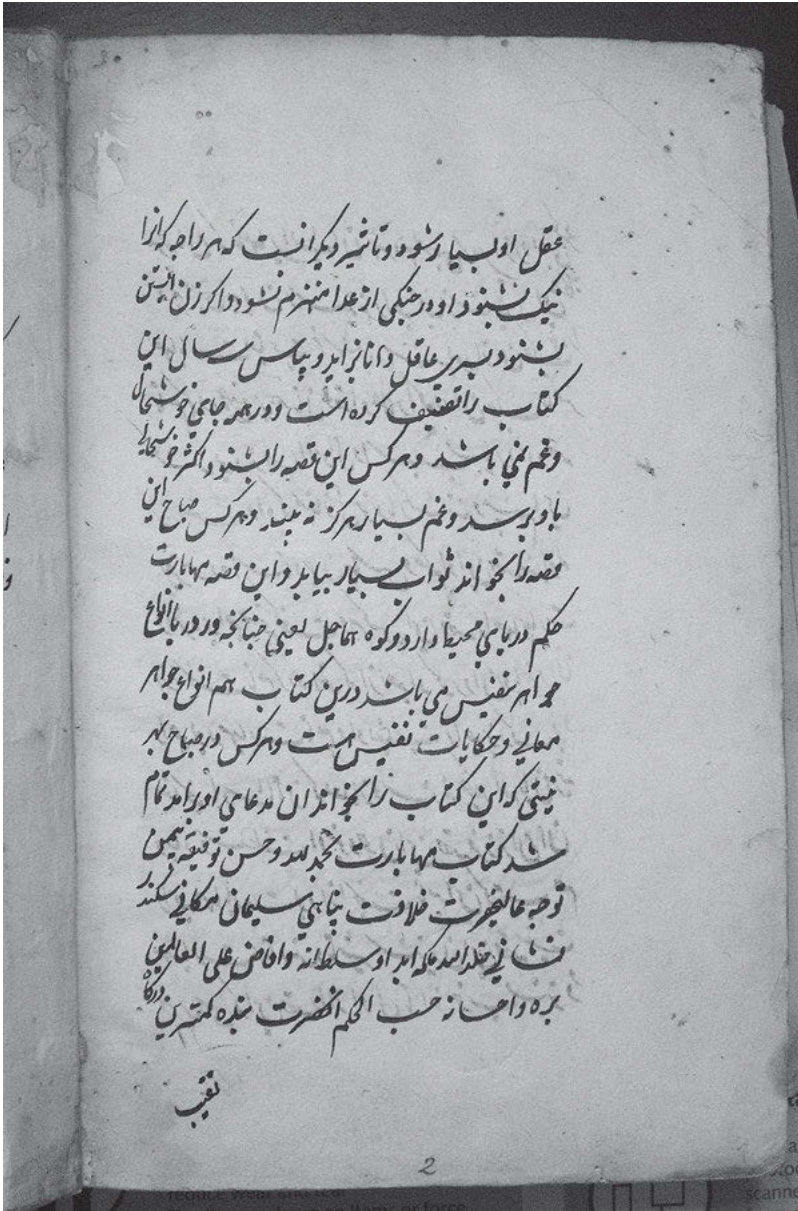 عقل او بسیار شود و تاثیر دیگر انست که هر راجه که انرا
نیک بشنود او در جنکی از عدا منهزم نشود و اکر زن ابستن
بشنود پسری عاقل و دانا بزاید و بیاس سه سال این
کتاب را تصنیف کرده است و در همه جای خوشحال
و غم نمی باشد و هر کس این قصه را بشنود اکثر خوشحالی
باو برسد و غم بسیار هرکز نه بیند و هر کس صباح این
قصه را بخواند ثواب بسیار بیابد و این قصه مهابارت
حکم دریای محیط دارد و کوه هماجل یعنی چنانچه در دریا انواع
جواهر نفیس می باشد درین کتاب هم انواع جواهر
معانی و حکایات نفیس است و هر کس در صباح بهر
نیتی که این کتاب را بخواند ان مدعای او برامد تمام
شد کتاب مهابارت بحمد لله و حسن توفیقه بیمن
توجه عالیحضرت خلافت پناهی سلیمان مکانی سکندر
نشانی خلد الله ملکه ابدا و سلطانه و افاض علی العالمین
بره و احسانه حسب الحکم انحضرت بنده کمترین درکاه
نقیب
2
reduce wear and tear
or force
scanne